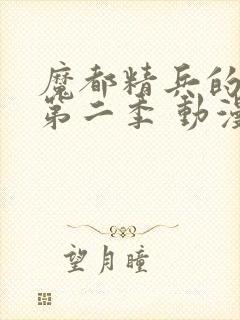 魔都精兵的
第二季 動漫
望月瞳